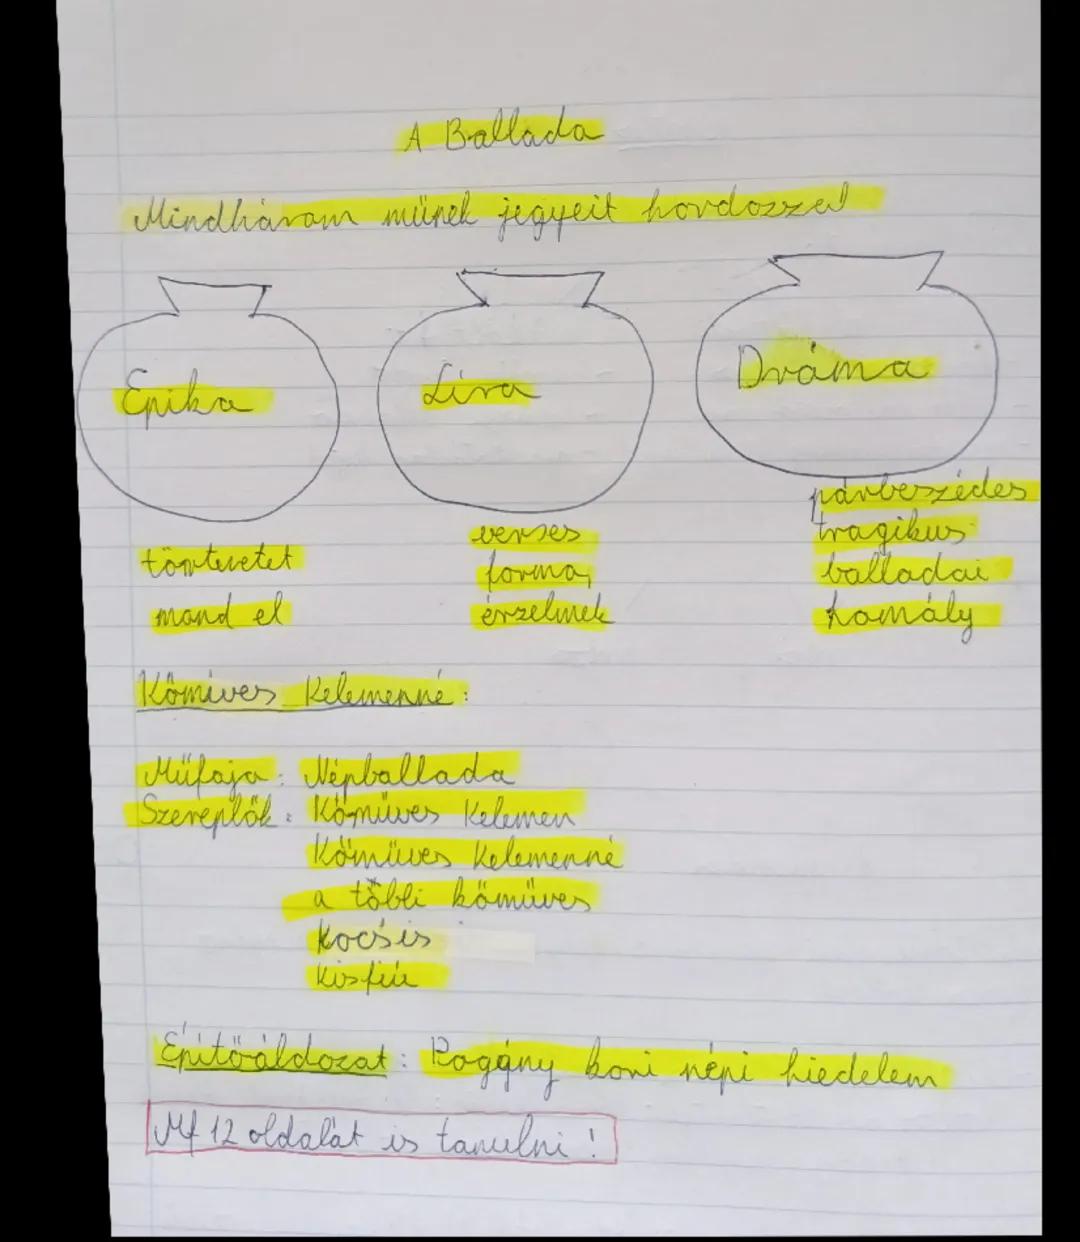 A Ballada
Mindhárom műnek jegyeit hordozza!
Epika
Líra
Dráma
történetet
mond el
verses
forma,
érzelmek
párbeszédes
tragikus
balladai
homály
Kőmíves Kelemenné:
Műfaja: Népballada
Szereplők: Kőműves Kelemen
Kőműves Kelemenné
a többi kőműves
Kocsis
Kisfiú
Építőáldozat: Pogány kori népi hiedelem
Mf 12 oldalát is tanulni!